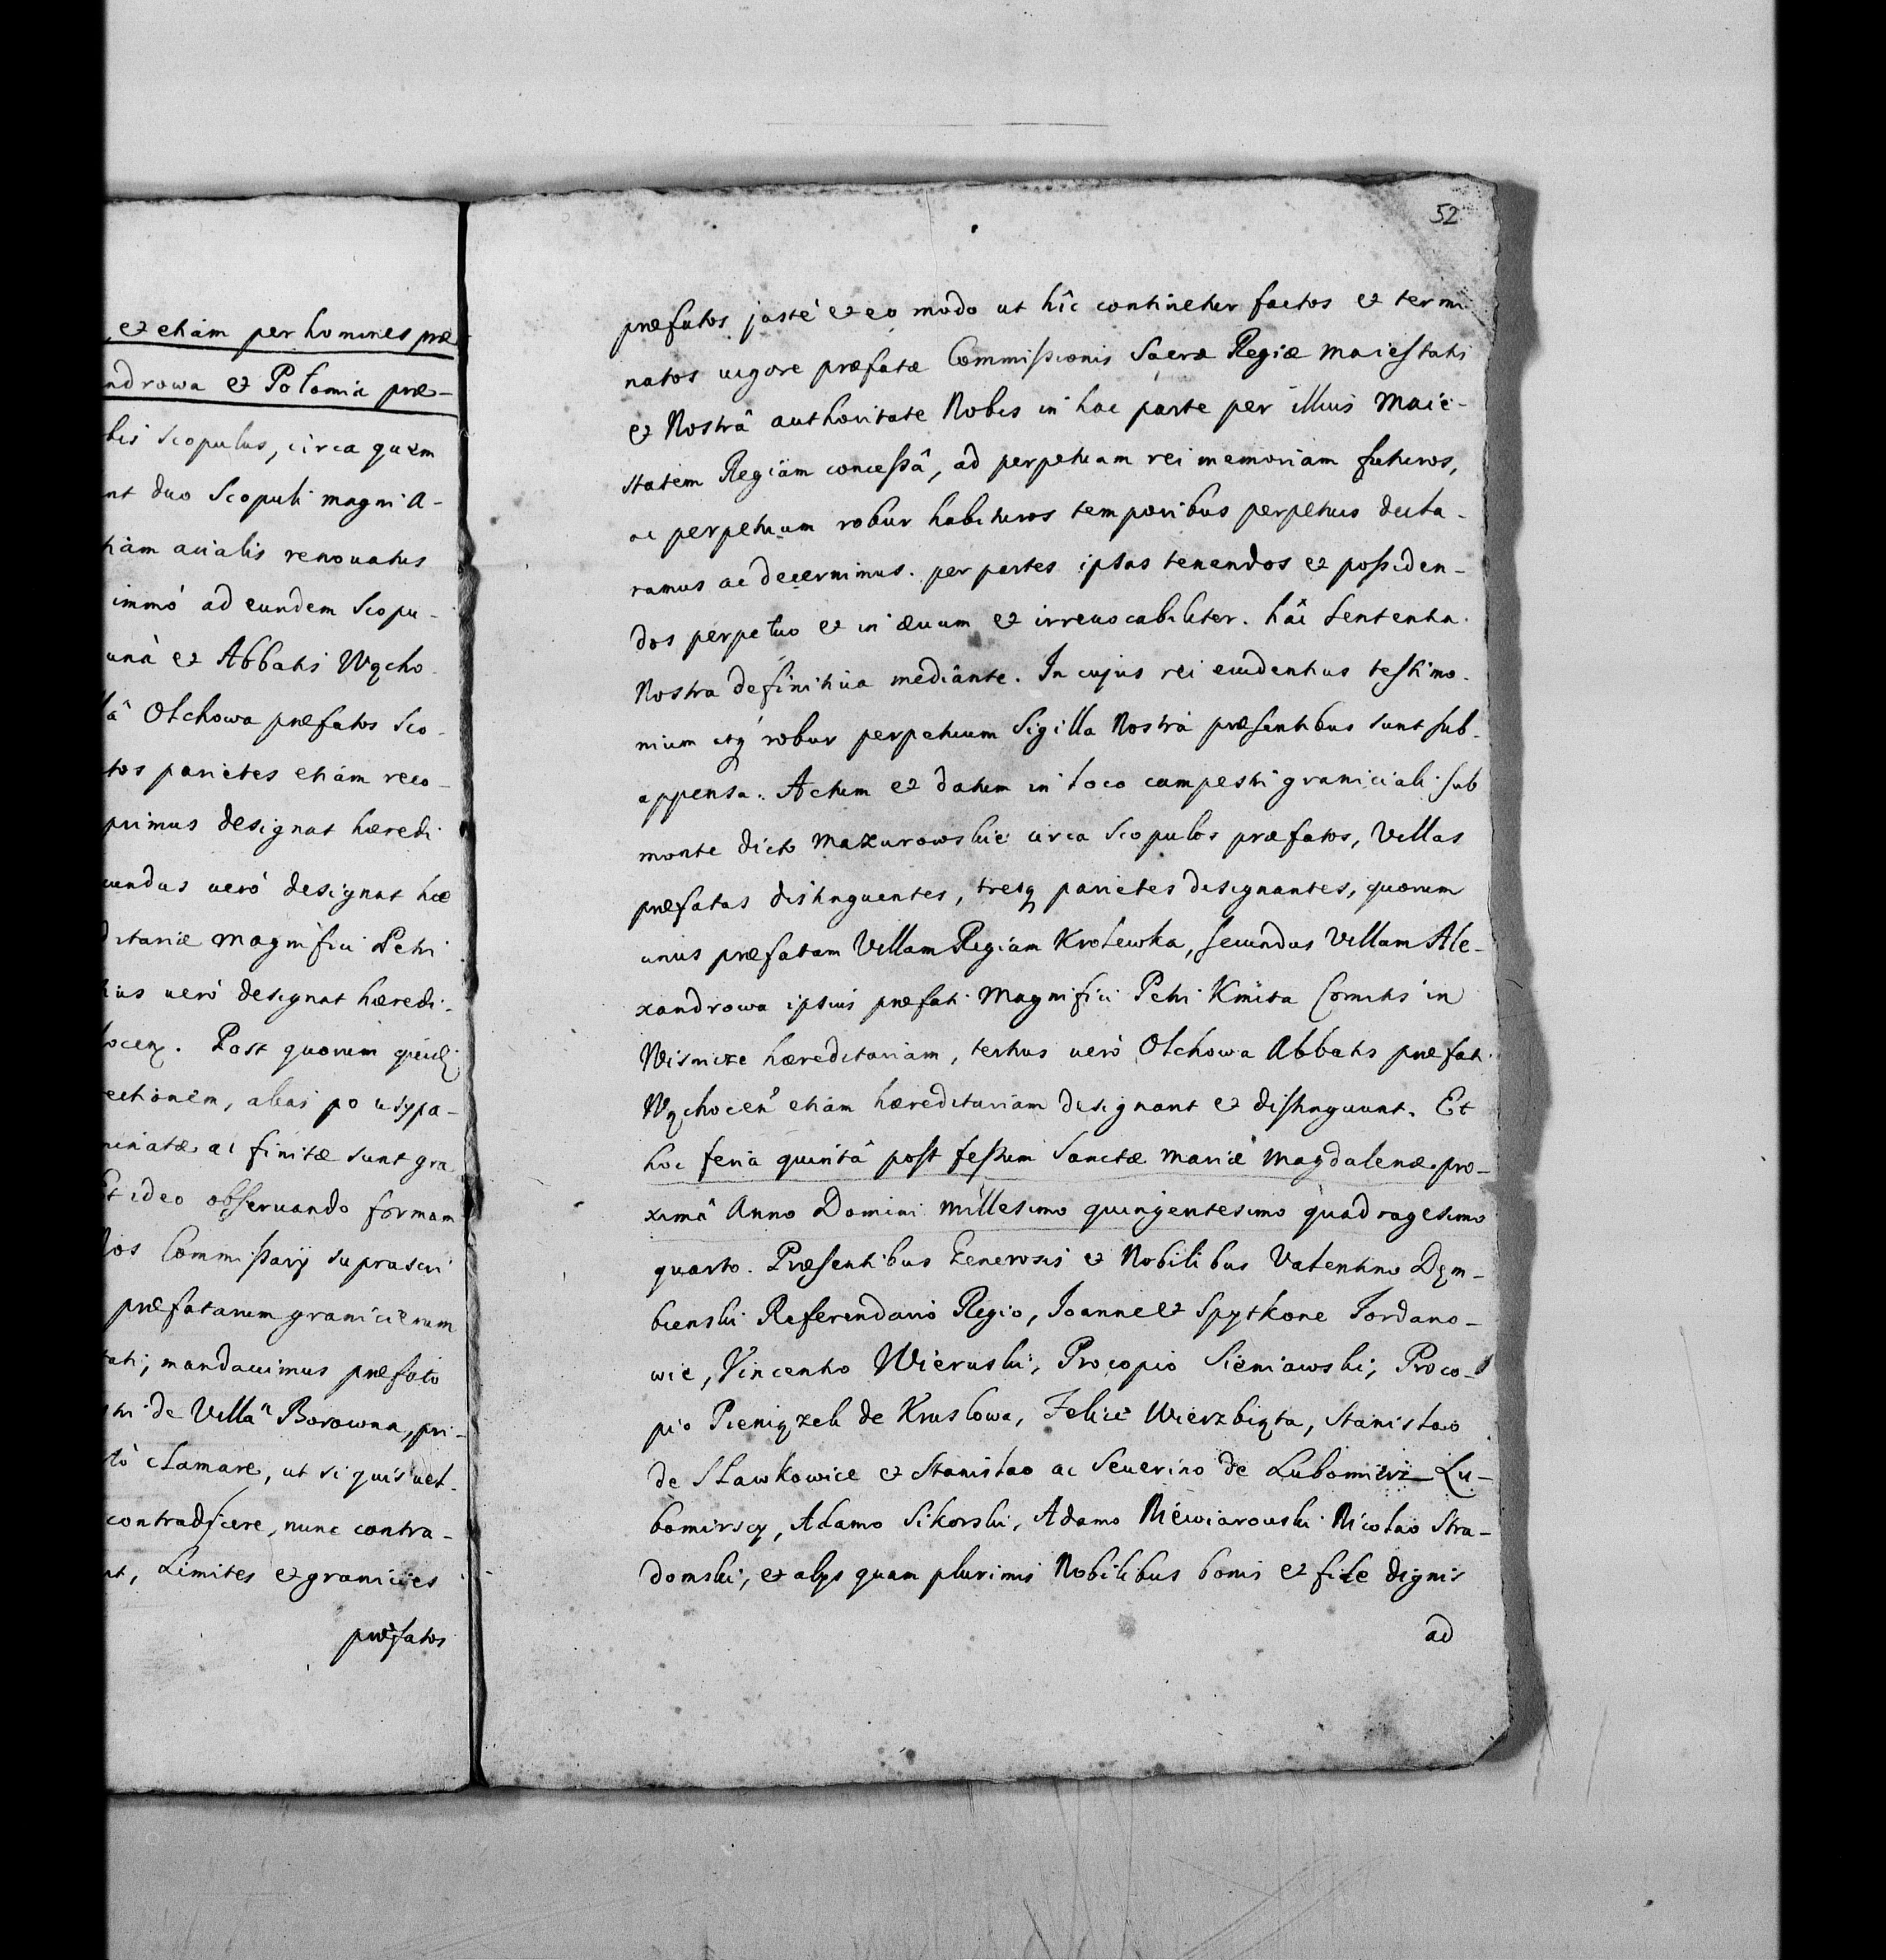 , et etiàm per homines præ
ndrowa et Połomie præ-
bis scopulus, circa quem
nt duo Scopuli magni a-
tiàm acialis renouatus
immó ad eundem Scopu-
unà et Abbatis Wącho
lâ Olchowa præfatos Sco-
tos parietes etiàm reco-
primus designat hæredi
cundus ueró designat hæ
ditariæ Magnifici Petri
tius ueró designat hæredi-
hocen. Post quorum
ectionem, alias po usypa-
minatæ ac finitæ sunt gra
Et ideo obseruando formam
Nos Commissarij suprascri
præfatarum granicierum
tati, mandauimus præfato
tri de Villâ Borowna, pri-
tò clamare, ut si quis uel-
contradicere, nunc contra-
nt, Limites et granicies
præfatos
52
præfatos justé et eo modo ut hîc continetur factos et termi
natos uigore præfatæ Commissionis Sacræ Regiæ Maiestatis
et Nostrâ authoritate Nobis in hac parte per illius Maie-
statem Regiam concessâ, ad perpetuam rei memoriam futuros,
ac perpetuum robur habituros temporibus perpetuis decla-
ramus ac decernimus. per partes ipsas tenendos et possiden-
dos perpetuo et in æuum et irreuocabiliter. hâc Sententia
Nostra definitiua mediante. In cujus rei euidentius testimo-
nium atq robur perpetuum Sigilla Nostra præsentibus sunt sub-
appensa. Actum et datum in loco campestri graniciali sub
monte dicto Mazurowskie circa Scopulos præfatos, Villas
præfatas distinguentes, tresq parietes designantes, quorum
unus præfatam Villam Regiam Krolewka, secundus Villam Ale-
xandrowa ipsius præfati Magnifici Petri Kmita Comitis in
Wisnicze hæreditariam, tertius ueró Olchowa Abbatis præfati
Wąchocen etiàm hæreditariam designant et distinguunt. Et
hoc feriâ quintâ post festum Sanctæ Mariæ Magdalenæ pro-
ximâ Anno Domini millesimo quingentesimo quadragesimo
quarto. Præsentibus Generosis et Nobilibus Valentino Dęm-
bienski Referendario Regio, Joanne et Spytkone Jordano-
wie, Vincentio Wieruski, Procopio Sieniawski, Proco-
pio Pieniązek de Kruslowa, Felici Wierzbięta, Stanislao
de Sławkowice et Stanislao ac Seuerino de Lubomierz Lu-
bomirscy, Adamo Sikorski, Adamo Niewiarouski Nicolao Stra-
domski, et alys quam plurimis Nobilibus bonis et fide dignis
ad